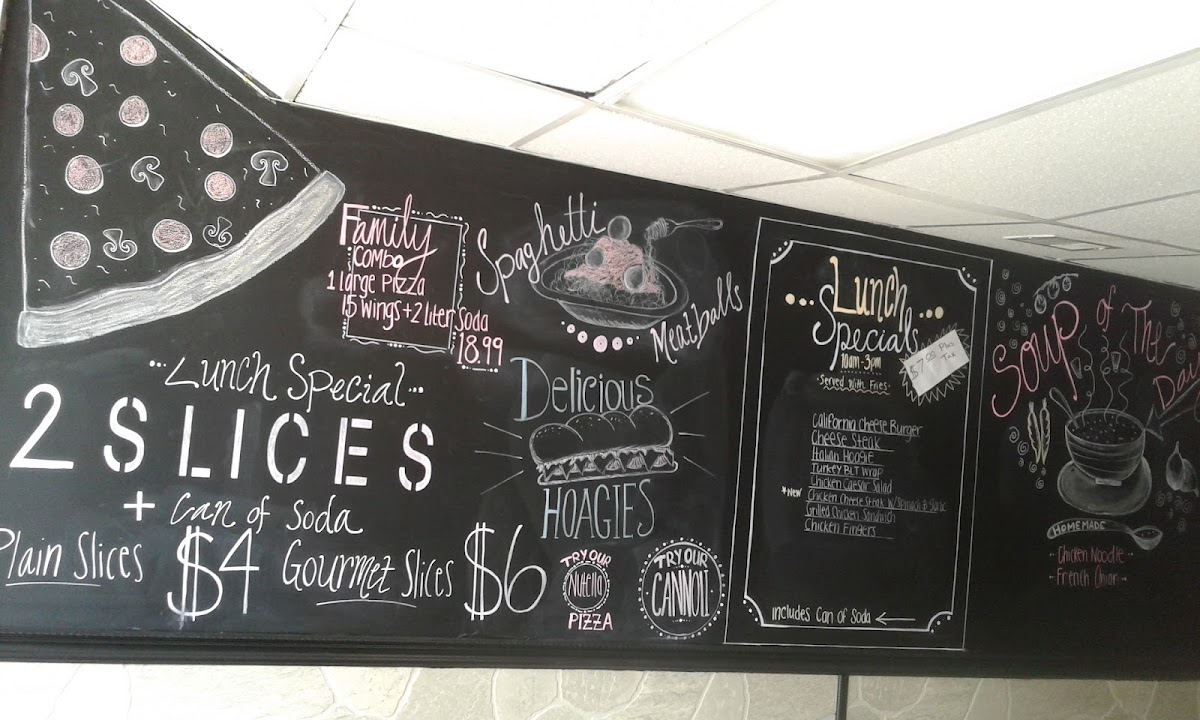 Family
Combo
1 large Pizza
15 wings + 2 liter Soda
18.99
Spaghetti
Meatballs
Lunch Special
2 SLICES
+ Can of Soda
Plain Slices $4
Gourmet Slices $6
Delicious
HOAGIES
TRY OUR
Nutella
PIZZA
TRY OUR
CANNOLI
Lunch
Specials
10am-3pm
Served With Fries
$7.00 Plus
Tax
California Cheese Burger
Cheese Steak
Italian Hoagie
Turkey BLT Wrap
Chicken Caesar Salad
*New Chicken Cheese Steak w/Spinach &
Grilled Chicken Sandwich
Chicken Fingers
Includes Can of Soda
Soup of The
Day
HOMEMADE
Chicken Noodle
French Onion